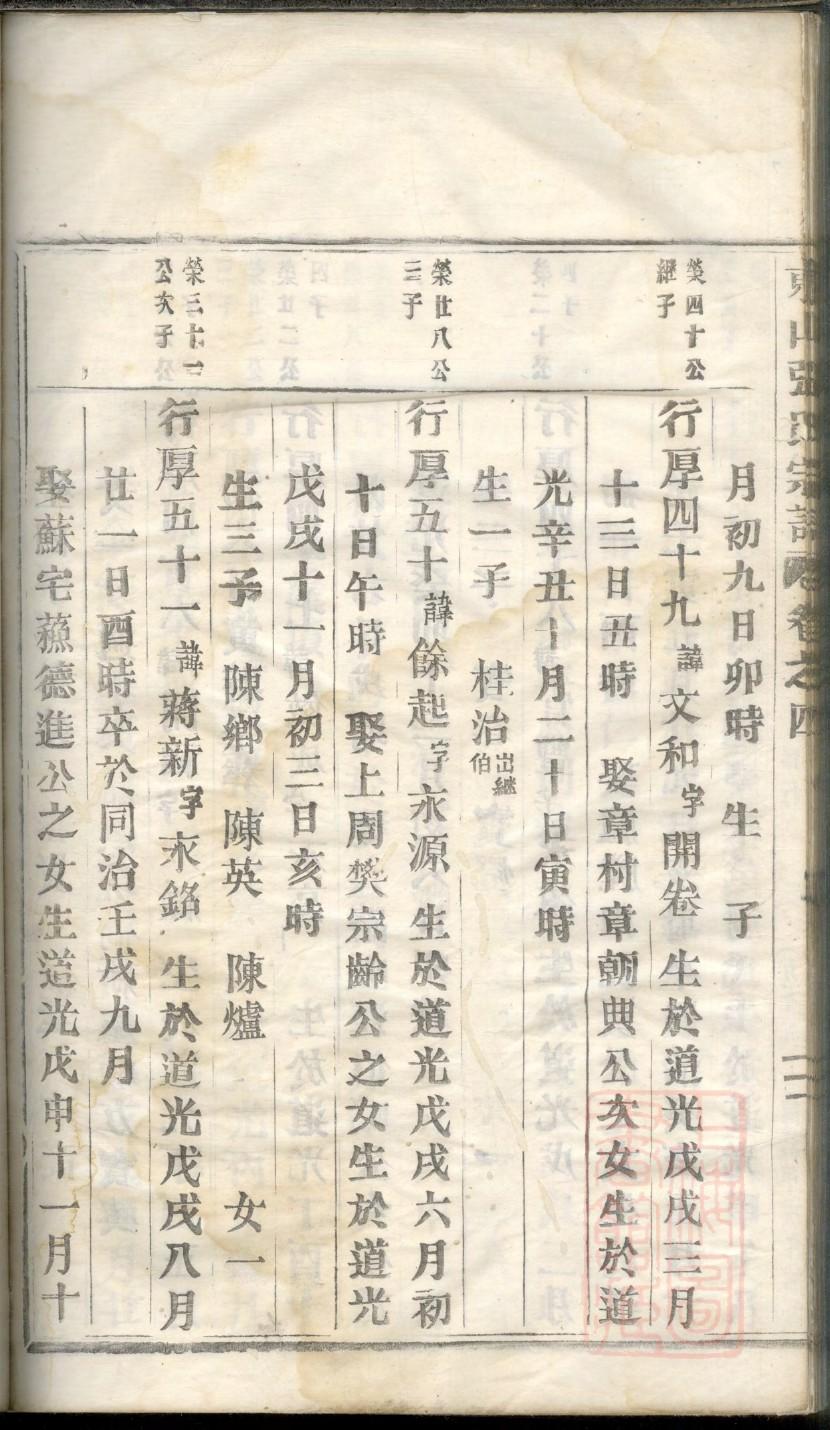 東山張氏宗譜 卷之四
月初九日卯時 生 子
榮四十公
繼子
行厚四十九諱文和字開卷 生於道光戊戌三月
十三日丑時 娶章村章朝典公次女生於道
光辛丑十月二十日寅時
生一子 桂治出繼伯
榮廿八公
三子
行厚五十諱餘起字永源 生於道光戊戌六月初
十日午時 娶上周樊宗齡公之女生於道光
戊戌十一月初三日亥時
生三子 陳鄉 陳英 陳爐 女一
榮三十一
公次子
行厚五十一諱蔣新字永銘 生於道光戊戌八月
廿一日酉時卒於同治壬戌九月
娶蘇宅蘓德進公之女生道光戊申十一月十